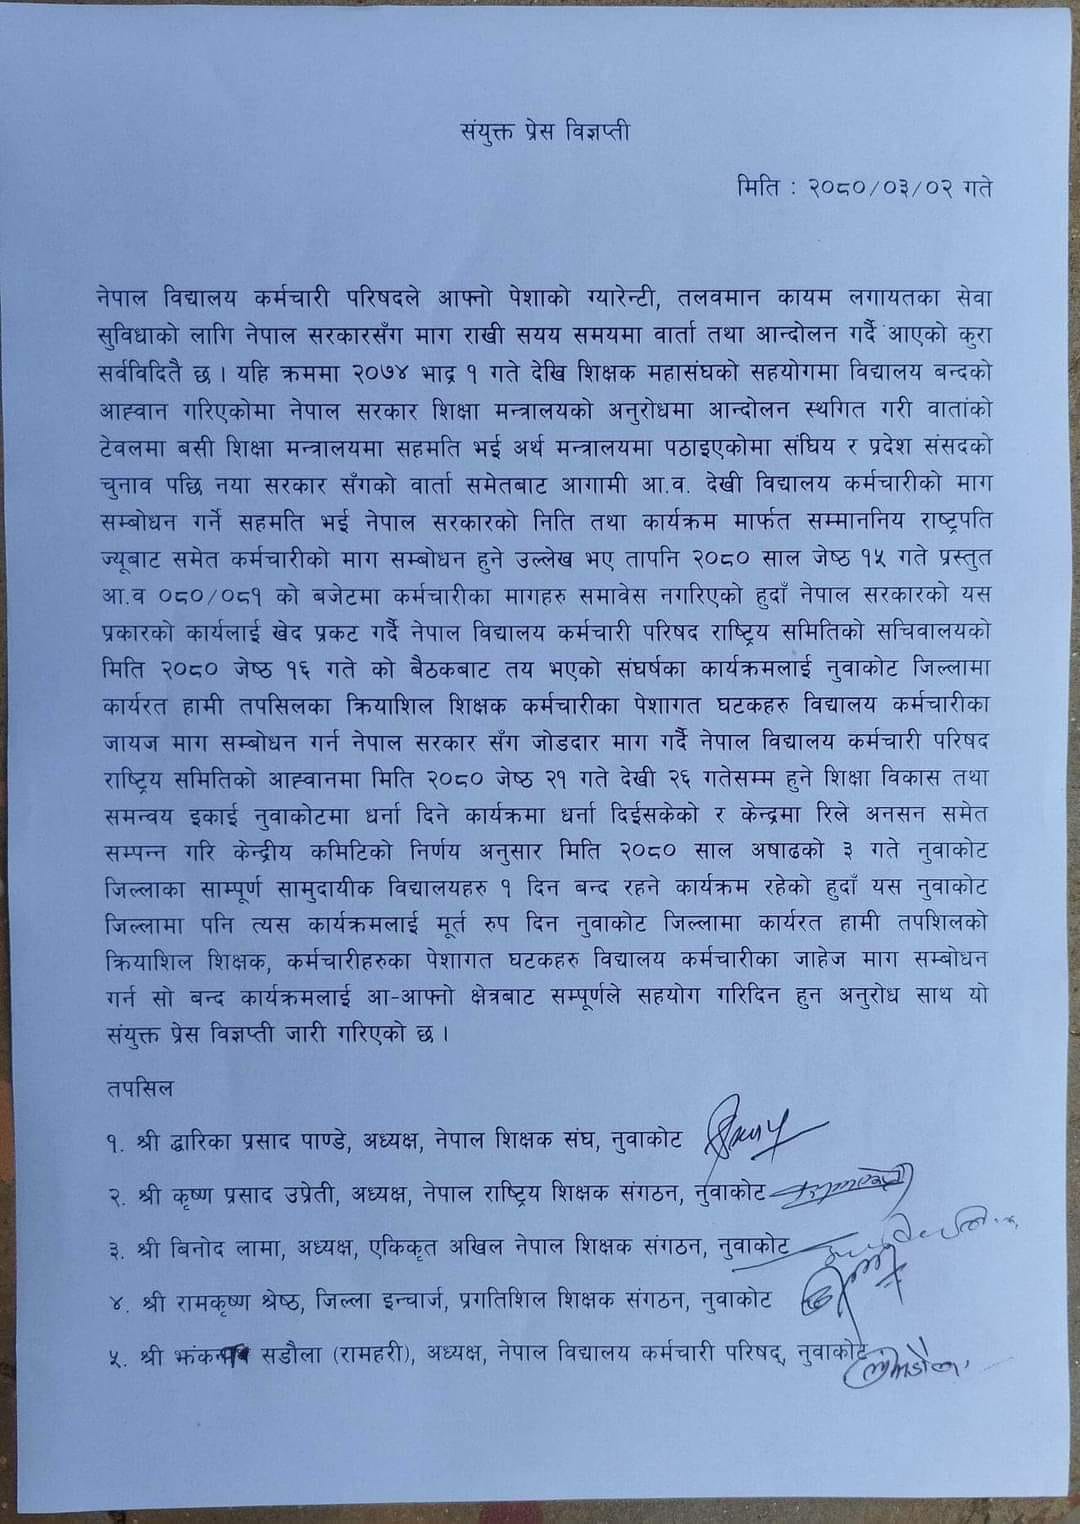 संयुक्त प्रेस विज्ञप्ती
मिति : २०८०/०३/०२ गते
नेपाल विद्यालय कर्मचारी परिषदले आफ्नो पेशाको ग्यारेन्टी, तलवमान कायम लगायतका सेवा
सुविधाको लागि नेपाल सरकारसँग माग राखी सयय समयमा वार्ता तथा आन्दोलन गर्दै आएको कुरा
सर्वविदितै छ । यहि क्रममा २०७४ भाद्र १ गते देखि शिक्षक महासंघको सहयोगमा विद्यालय बन्दको
आह्वान गरिएकोमा नेपाल सरकार शिक्षा मन्त्रालयको अनुरोधमा आन्दोलन स्थगित गरी वार्ताको
टेवलमा बसी शिक्षा मन्त्रालयमा सहमति भई अर्थ मन्त्रालयमा पठाइएकोमा संघिय र प्रदेश संसदको
चुनाव पछि नया सरकार सँगको वार्ता समेतबाट आगामी आ.व. देखी विद्यालय कर्मचारीको माग
सम्बोधन गर्ने सहमति भई नेपाल सरकारको निति तथा कार्यक्रम मार्फत सम्माननिय राष्ट्रपति
ज्यूबाट समेत कर्मचारीको माग सम्बोधन हुने उल्लेख भए तापनि २०८० साल जेष्ठ १५ गते प्रस्तुत
आ.व ०८०/०८१ को बजेटमा कर्मचारीका मागहरु समावेस नगरिएको हुदाँ नेपाल सरकारको यस
प्रकारको कार्यलाई खेद प्रकट गर्दै नेपाल विद्यालय कर्मचारी परिषद राष्ट्रिय समितिको सचिवालयको
मिति २०८० जेष्ठ १६ गते को बैठकबाट तय भएको संघर्षका कार्यक्रमलाई नुवाकोट जिल्लामा
कार्यरत हामी तपसिलका क्रियाशिल शिक्षक कर्मचारीका पेशागत घटकहरु विद्यालय कर्मचारीका
जायज माग सम्बोधन गर्न नेपाल सरकार सँग जोडदार माग गर्दै नेपाल विद्यालय कर्मचारी परिषद
राष्ट्रिय समितिको आह्वानमा मिति २०८० जेष्ठ २१ गते देखी २६ गतेसम्म हुने शिक्षा विकास तथा
समन्वय इकाई नुवाकोटमा धर्ना दिने कार्यक्रममा धर्ना दिईसकेको र केन्द्रमा रिले अनसन समेत
सम्पन्न गरि केन्द्रीय कमिटिको निर्णय अनुसार मिति २०८० साल अषाढको ३ गते नुवाकोट
जिल्लाका साम्पूर्ण सामुदायीक विद्यालयहरु १ दिन बन्द रहने कार्यक्रम रहेको हुदाँ यस नुवाकोट
जिल्लामा पनि त्यस कार्यक्रमलाई मूर्त रुप दिन नुवाकोट जिल्लामा कार्यरत हामी तपशिलको
क्रियाशिल शिक्षक, कर्मचारीहरुका पेशागत घटकहरु विद्यालय कर्मचारीका जाहेज माग सम्बोधन
गर्न सो बन्द कार्यक्रमलाई आ-आफ्नो क्षेत्रबाट सम्पूर्णले सहयोग गरिदिन हुन अनुरोध साथ यो
संयुक्त प्रेस विज्ञप्ती जारी गरिएको छ ।
तपसिल
१. श्री द्धारिका प्रसाद पाण्डे, अध्यक्ष, नेपाल शिक्षक संघ, नुवाकोट
२. श्री कृष्ण प्रसाद उप्रेती, अध्यक्ष, नेपाल राष्ट्रिय शिक्षक संगठन, नुवाकोट
३. श्री बिनोद लामा, अध्यक्ष, एकिकृत अखिल नेपाल शिक्षक संगठन, नुवाकोट
४. श्री रामकृष्ण श्रेष्ठ, जिल्ला इन्चार्ज, प्रगतिशिल शिक्षक संगठन, नुवाकोट
५. श्री सडौला (रामहरी), अध्यक्ष, नेपाल विद्यालय कर्मचारी परिषद्, नुवाकोट